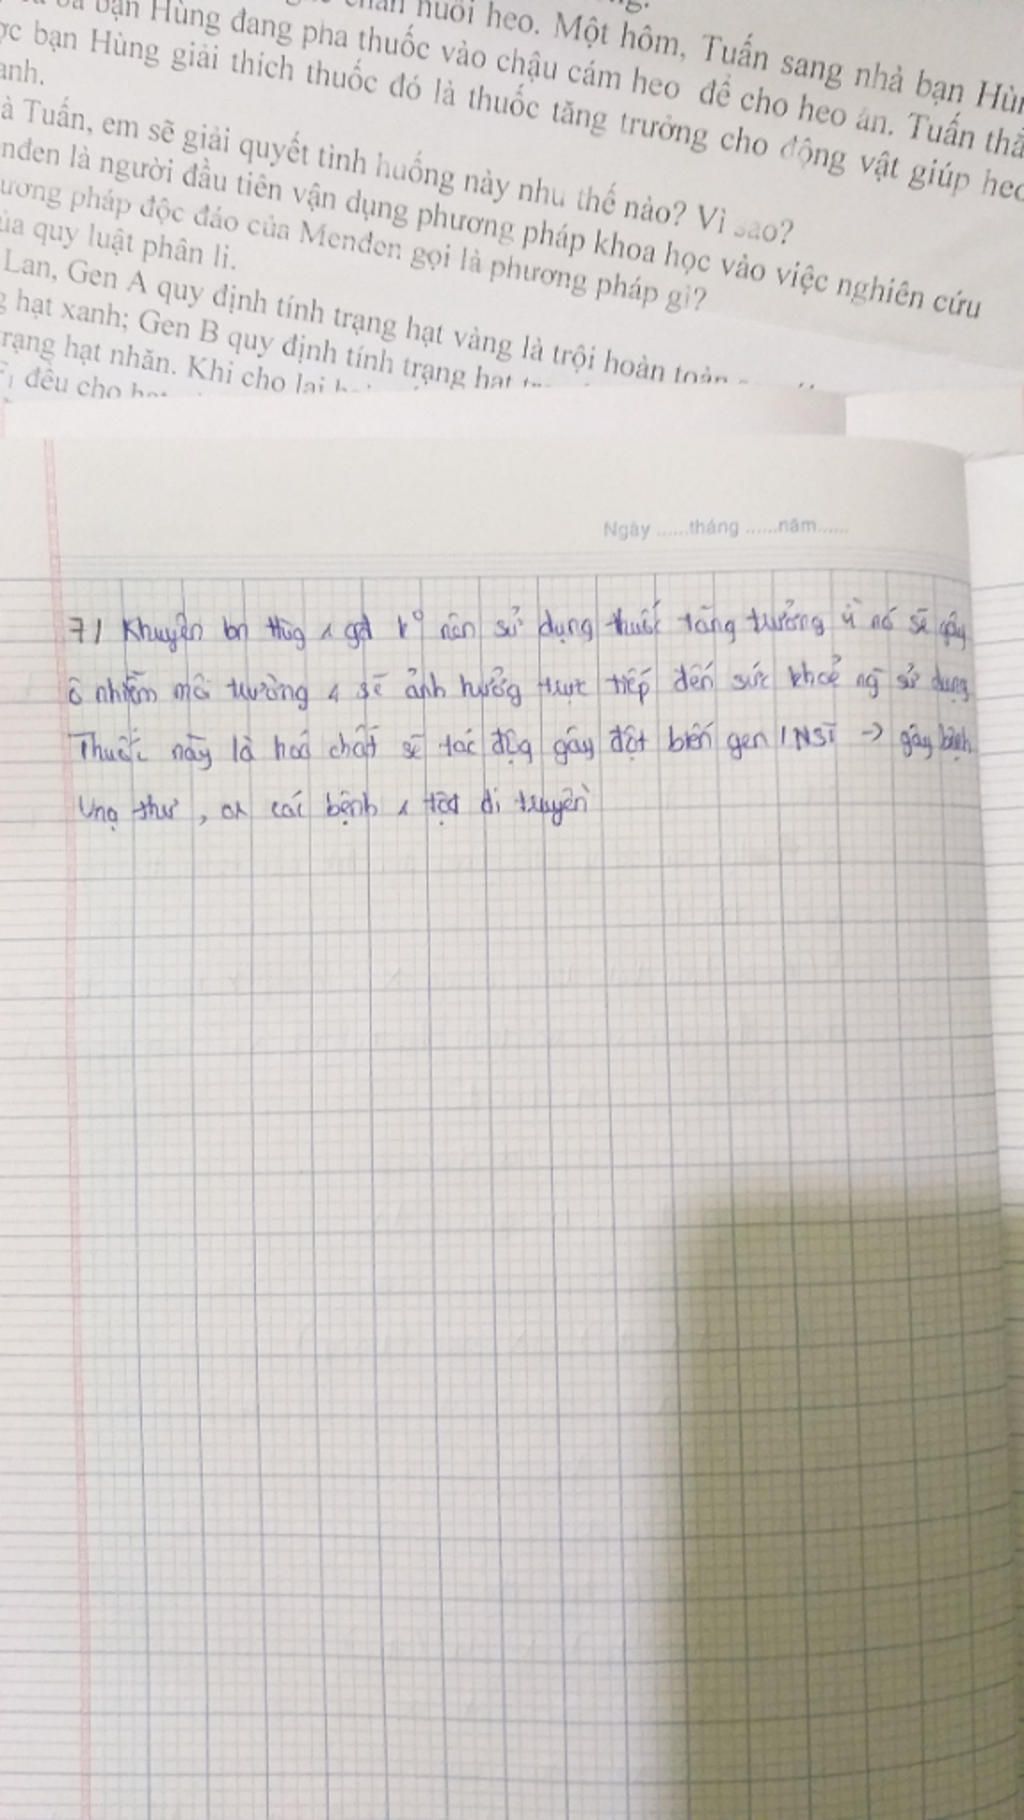 bạn Hùng đang pha thuốc vào chậu cám heo để cho heo ăn. Tuấn
nuôi heo. Một hôm, Tuấn sang nhà bạn
bạn Hùng giải thích thuốc đó là thuốc tăng trưởng cho động vật giúp
anh.
Tuấn, em sẽ giải quyết tình huống này như thế nào? Vì sao?
là người đầu tiên vận dụng phương pháp khoa học vào việc nghiên cứu
pháp độc đáo của Menđen gọi là phương pháp gì?
quy luật phân li.
Lan, Gen A quy định tính trạng hạt vàng là trội hoàn toàn
hạt xanh; Gen B quy định tính trạng hạt
hạt nhăn. Khi cho lai
F1 đều cho
Ngày ......tháng ......năm......
7/ Khuyên bn Hùg & gđ k° nên sử dụng thuốc tăng trưởng vì nó sẽ gây
ô nhiễm môi trường & sẽ ảnh hưởng trực tiếp đến sức khoẻ ng̃ sử dụng
Thuốc này là hoá chất sẽ tác độg gây đột biến gen / NST → gây bệnh
Ung thư, các bệnh & tật di truyền